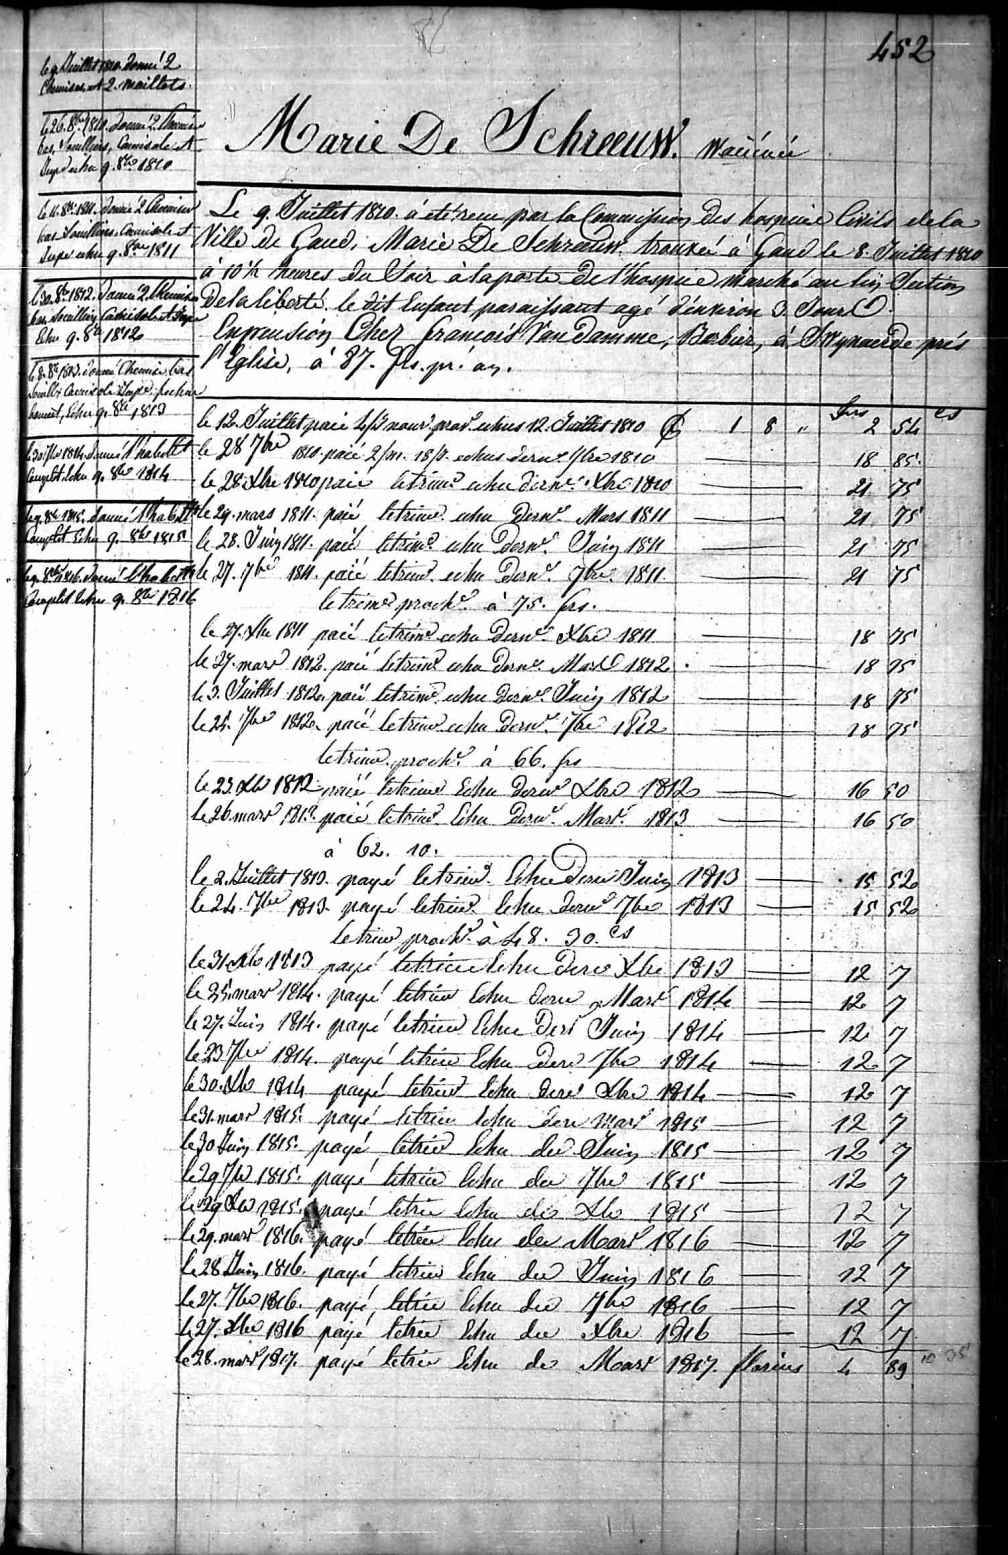 452
le 9 Juillet 1810 donné 2
Chemises et 2. maillots.
le 26. 8bre 1810. donné 2 Chemises
bas, Soulliers, Camisole et
Jupe echu 9. 8bre 1810
le 11. 8bre 1811. donné 2 Chemises
bas Soulliers, Camisole et
Jupe echu 9. 8bre 1811
le 30. 8bre 1812. donné 2 Chemises
bas, Soulliers, Camisole et Jupe
Echu 9. 8bre 1812
le 8. 8bre 1813. donné Chemises, bas
Soulls Camisole Jupe, fichu
bonnet, Echu 9. 8bre 1813
le 30 7bre 1814 donné l'habillt
Complet. Echu 9. 8bre 1814
le 9. 8bre 1815. donné l'habillt
Complet Echu 9. 8bre 1815
le 9. 8bre 1816. donné l'habillt
Complet Echu 9. 8bre 1816
Marie De Schreeuw.
Le 9. Juillet 1810. à été recue par la Commission des hospices Civils de la
Ville de Gand, Marie De Schreeuw. trouvée à Gand le 8. Juillet 1810
à 10½ heures du Soir à la porte de l'hospice marché au lin Section
de la liberté. le dit Enfant paraissant agé d'environ 3. Jours.
En pension Chez francois Van Damme, Barbier, à Swynaerde près
l'Eglise, à 87. frs. pr. an.
frs cs
le 12. Juillet paié nour. prov. echus 12. Juillet 1810 1 8 " 2 54
le 28 7bre 1810. paié 2/m. 18/j. echus dernr 7bre 1810 18 85.
le 28 Xbre 1810 paié le trimr echu dernr. Xbre 1810 21 75
le 29. mars 1811. paié le trimr. echu dernr. Mars 1811 21 75
le 28. Juin 1811. paié le trimr. echu dernr. Juin 1811 21 75
le 27. 7bre 1811. paié le trimr. echu dernr. 7bre 1811. 21 75
le trimr proche. à 75. frs.
le 27. Xbre 1811 paié le trimr echu dernr. Xbre 1811 18 75
le 27. mars 1812. paié le trimr. echu dernr. Mars 1812. 18 75
le 3. Juillet 1812. paié le trimr. echu dernr. Juin 1812 18 75
le 25. 7bre 1812. paié le trimr echu dernr. 7bre 1812 18 75
le trimr. proche. à 66. frs
le 23 Xbre 1812 paié le trimr Echu dernr Xbre 1812 16 50
le 26 mars 1813. paié le trimr. Echu dernr. Mars. 1813 16 50
à 62. 10.
le 2. Juillet 1813. payé le trimr. Echu dernr Juin 1813 15 52
le 24. 7bre 1813. payé le trimr. Echu dernr 7bre 1813 15 52
le trimr proche. à 48. 30. cs
le 31. Xbre 1813 payé le trimr Echu dernr Xbre 1813 12 7
le 25. mars 1814. payé le trimr Echu dernr Mars 1814 12 7
le 27. Juin 1814. payé le trimr Echu der Juin 1814 12 7
le 23 7bre 1814. payé le trimr Echu der 7bre 1814 12 7
le 30. Xbre 1814 payé le trimr Echu der Xbre 1814 12 7
le 31. mars 1815. payé le trimr Echu der mars 1815 12 7
le 30 Juin 1815. payé le trimr Echu der Juin 1815 12 7
le 29 7bre 1815. payé le trimr Echu der 7bre 1815 12 7
le 29 Xbre 1815. payé le trimr Echu der Xbre 1815 12 7
le 29. mars 1816. payé le trimr Echu der Mars 1816 12 7
le 28 Juin 1816. payé le trimr Echu der Juin 1816 12 7
le 27. 7bre 1816. payé le trimr Echu der 7bre 1816 12 7
le 27. Xbre 1816 payé le trimr Echu der Xbre 1816 12 7
le 28. mars 1817. payé le trimr Echu der Mars 1817. florins 4 89 10 35